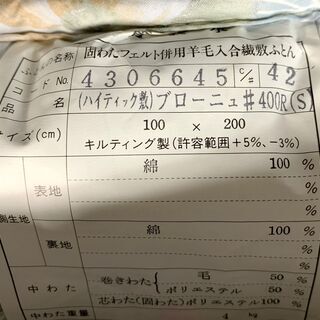 ふとんの名称 固わたフェルト併用羊毛入合繊敷ふとん
コードNo. 4306645 C/# 42
品名 (ハイティック敷)ブローニュ#400R(S)
サイズ(cm) 100 × 200
キルティング製(許容範囲+5%、-3%)
綿 100 %
表地 %
%
側生地
綿 100 %
裏地 %
%
中わた 巻きわた 毛 50 %
ポリエステル 50 %
芯わた(固わた)ポリエステル100 %
中わた重量 4 kg